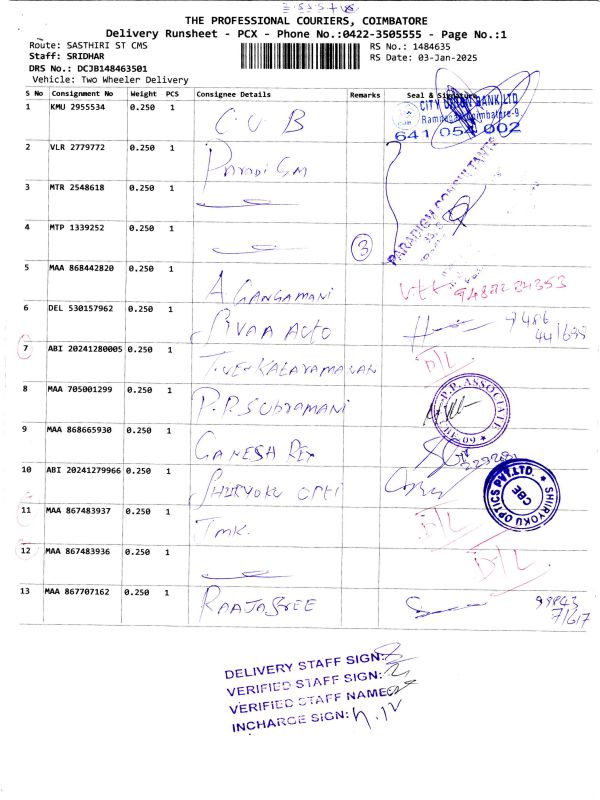 THE PROFESSIONAL COURIERS, COIMBATORE
Delivery Runsheet - PCX - Phone No.:0422-3505555 - Page No.:1
Route: SASTHIRI ST CMS
RS No.: 1484635
Staff: SRIDHAR
RS Date: 03-Jan-2025
DRS No.: DCJB148463501
Vehicle: Two Wheeler Delivery
S No Consignment No Weight PCS Consignee Details Remarks Seal & Signature
1 KMU 2955534 0.250 1 C U B
CITY UNION BANK LTD
641 054 002
2 VLR 2779772 0.250 1
PARADIGM CONSULTANTS
3 MTR 2548618 0.250 1
4 MTP 1339252 0.250 1 3
5 MAA 868442820 0.250 1 A. GANGAMANI
6 DEL 530157962 0.250 1 SIVAA AUTO
7 ABI 20241280005 0.250 1 T. VENKALARAMANAN D/L
8 MAA 705001299 0.250 1 P.P. Subramani
P.P. ASSOCIATE
9 MAA 868665930 0.250 1 GANESH
10 ABI 20241279966 0.250 1 SHIRYOKU OPTI
SHIRYOKU OPTICS PVT.LTD.
CBE
11 MAA 867483937 0.250 1 TMK. D/L
12 MAA 867483936 0.250 1 D/L
13 MAA 867707162 0.250 1 RAAJASREE
99843
71617
DELIVERY STAFF SIGN:
VERIFIED STAFF SIGN:
VERIFIED STAFF NAME
INCHARGE SIGN: